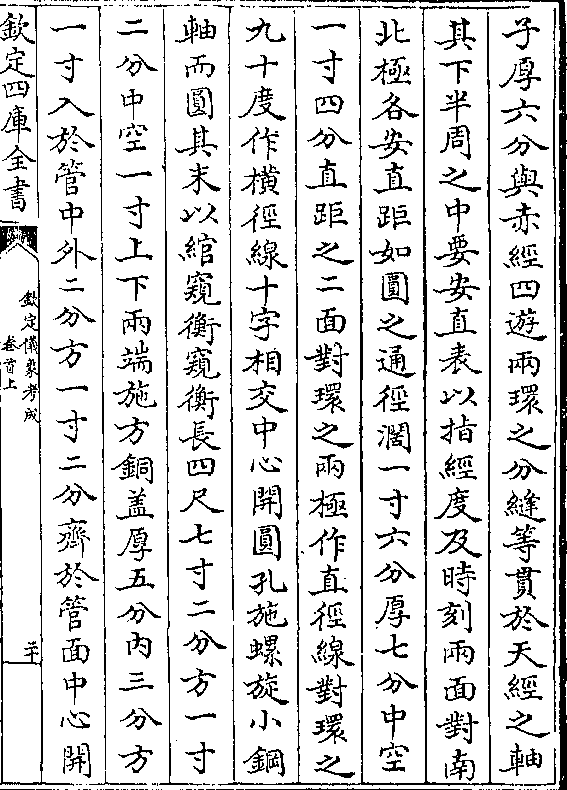 子厚六分與赤經四遊兩環之分縫等貫於天經之軸
其下半周之中要安直表以指經度及時刻兩面對南
北極各安直距如圓之通徑濶一寸六分厚七分中空
一寸四分直距之二面對環之兩極作直徑線對環之
九十度作横徑線十字相交中心開圓孔施螺旋小鋼
軸而圓其末以綰窺衡窺衡長四尺七寸二分方一寸
二分中空一寸上下兩端施方銅盖厚五分内三分方
一寸入於管中外二分方一寸二分齊於管面中心開
欽定四庫全書
欽定儀象考成
卷首上
二十